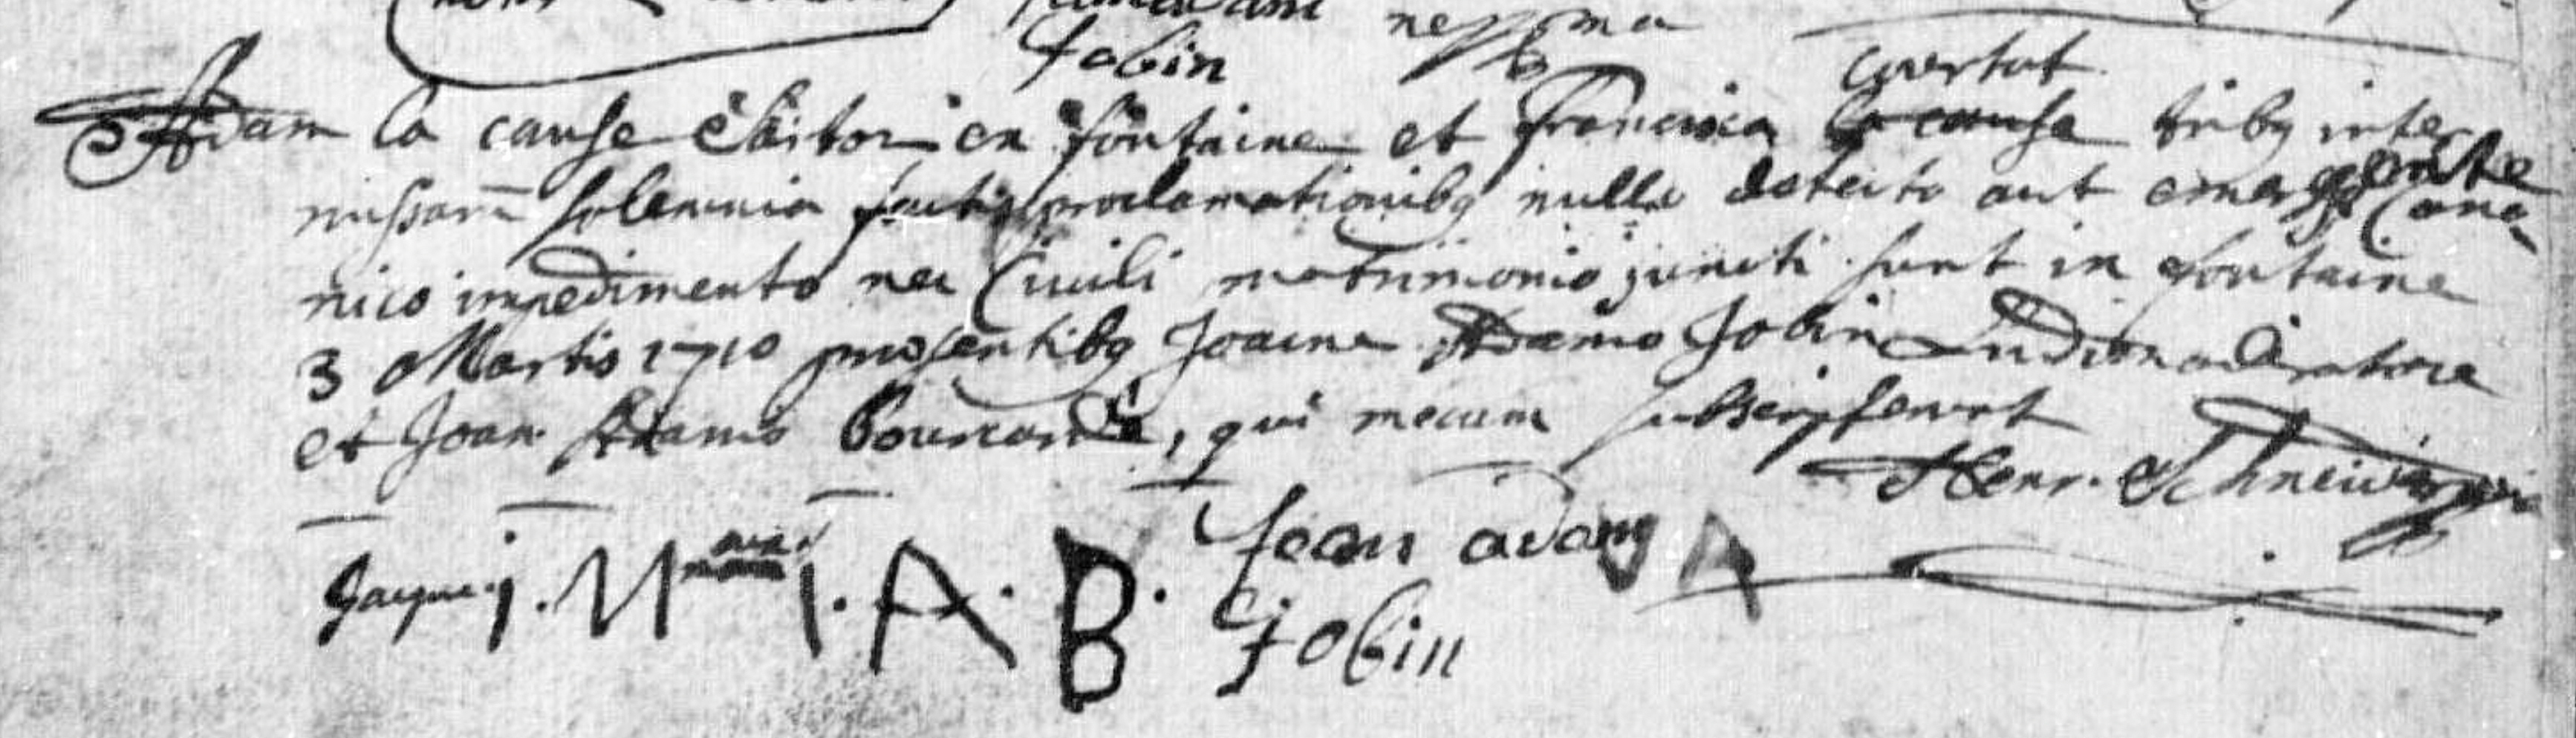 Jobin
Covertat
Adam la cause Pastor in fontaine et francisca la cause tribq inter
missarū solemnia factis proclamationibq nullo detecto aut emergente Cano-
nico impedimento nec Civili matrimonio juncti sunt in fontaine
3 Martis 1710 presentibq Joanne Adamo Jobin Ludimoderatore
et Joan Adamo Bourcard, qui mecum subscripserunt
Henr. Schneid
Jacque j. M I. A. B. Jean adam
Jobin